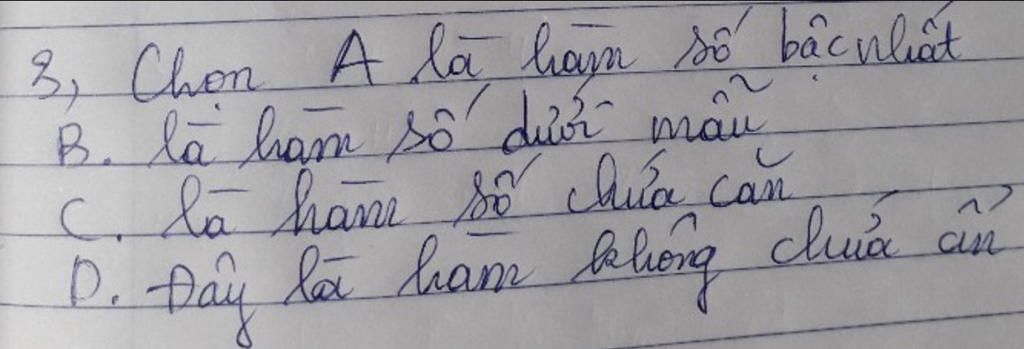 3, Chọn A là hàm số bậc nhất
B. là hàm số dưới mẫu
C. là hàm số chứa căn
D. Đây là hàm không chứa ẩn